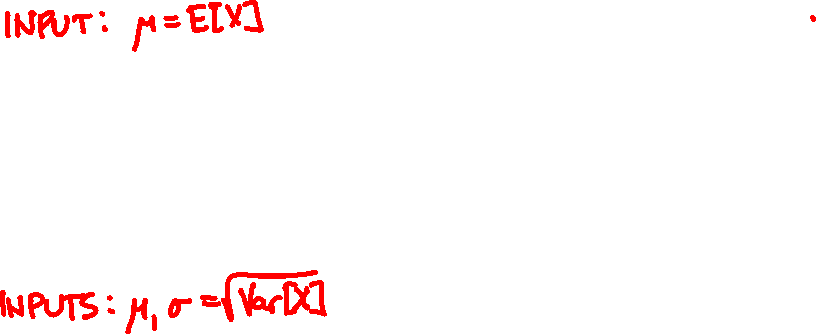 INPUT: μ = E[X]
INPUTS: μ, σ = √Var[X]